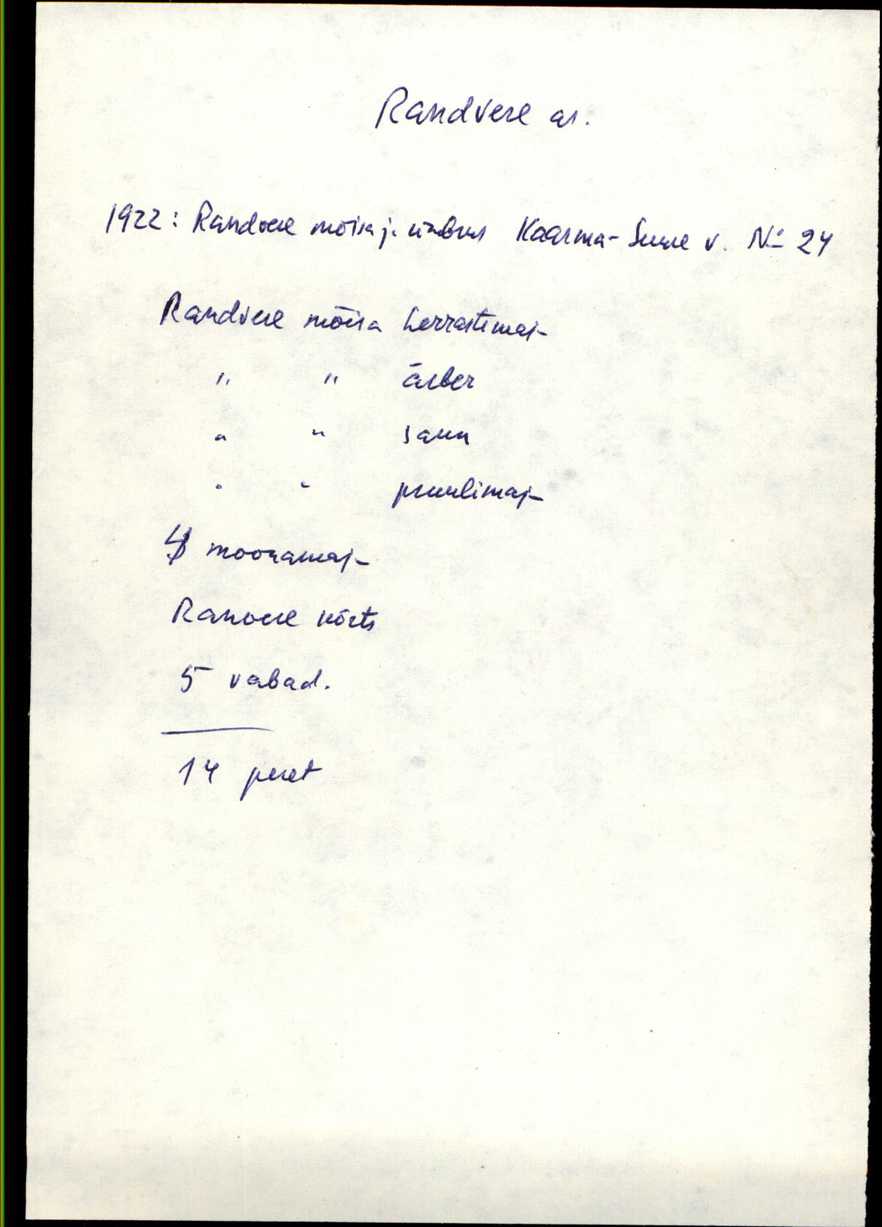 Randvere as.
1922: Randvere mõisa j. ümbrus Kaarma-Suure v. № 24
Randvere mõisa herrastemaj-
" " ärber
" " saun
" " pruulimaj-
4 moonamaj-
Ranvere kõrts
5 vabad.
14 peret